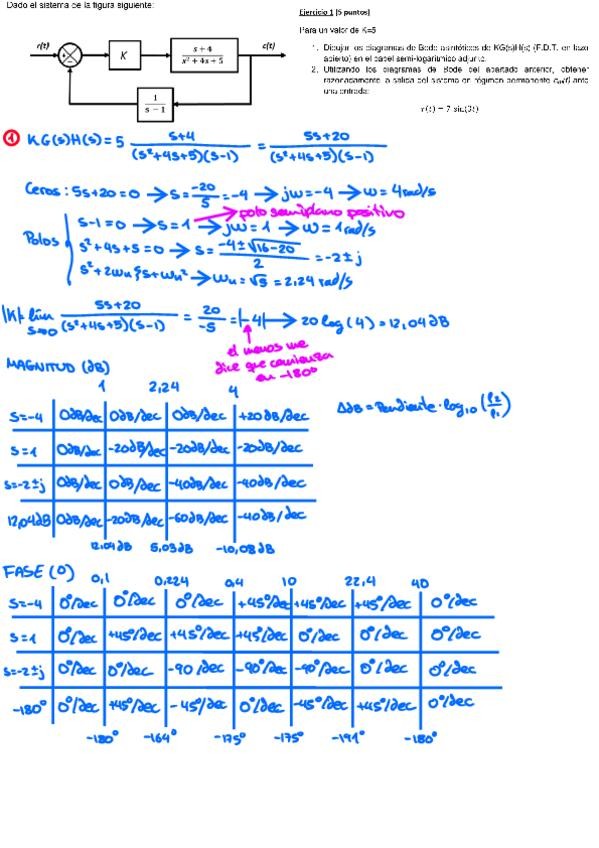 Dado el sistema de la figura siguiente:
Ejercicio 1 [5 puntos]
Para un valor de K=5
1. Dibujar los diagramas de Bode asintóticos de KG(s)H(s) (F.D.T. en lazo
abierto) en el papel semi-logarítmico adjunto.
2. Utilizando los diagramas de Bode del apartado anterior, obtener
razonadamente la salida del sistema en régimen permanente ante
una entrada:
r(t) = 7 sin(3t)
r(t) K s+4 c(t)
s²+4s+5
1
s-1
① KG(s)H(s) = 5 s+4 / (s²+4s+5)(s-1) = 5s+20 / (s²+4s+5)(s-1)
Ceros: 5s+20=0 → s = -20/5 = -4 → jω = -4 → ω = 4 rad/s
polo semiplano positivo
Polos s-1=0 → s=1 → jω=1 → ω=1 rad/s
s²+4s+5=0 → s = -4±√16-20 / 2 = -2±j
s²+2ωn ξs+ωn² → ωn=√5 = 2,24 rad/s
|K| lim s→0 5s+20 / (s²+4s+5)(s-1) = 20/-5 = |-4| → 20 log (4) = 12,04 dB
el menos me
dice que comienza
en -180º
MAGNITUD (dB)
1 2,24 4
s=-4 0dB/dec 0dB/dec 0dB/dec +20dB/dec
ΔdB = Pendiente · log10 (f2/f1)
s=1 0dB/dec -20dB/dec -20dB/dec -20dB/dec
s=-2±j 0dB/dec 0dB/dec -40dB/dec -40dB/dec
12,04dB 0dB/dec -20dB/dec -60dB/dec -40dB/dec
12,04dB 5,03dB -10,08dB
FASE (º)
0,1 0,224 0,4 10 22,4 40
s=-4 0º/dec 0º/dec 0º/dec +45º/dec +45º/dec +45º/dec 0º/dec
s=1 0º/dec +45º/dec +45º/dec +45º/dec 0º/dec 0º/dec 0º/dec
s=-2±j 0º/dec 0º/dec -90/dec -90º/dec -90º/dec 0º/dec 0º/dec
-180º 0º/dec +45º/dec -45º/dec 0º/dec -45º/dec +45º/dec 0º/dec
-180º -164º -175º -175º -191º -180º